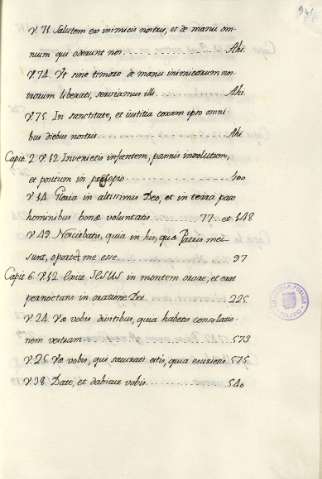 V. 71. Salutem ex inimicis nostris, et de manu om-
nium qui oderunt nos. Ahi.
V. 74. Vt sine timore de manu inimicorum nos-
trorum liberati, serviamus illi. Ahi.
V. 75. In sanctitate, et iustitia coram ipso omni-
bus diebus nostris. Ahi.
Capit. 2. V. 12. Invenietis infantem, pannis involutum,
et positum in præsepio. 100
V. 14. Gloria in altissimis Deo, et in terra pax
hominibus bonæ voluntatis. 77. et 148
V. 49. Nesciebatis, quia in his, quæ Patris mei
sunt, oportet me esse. 37
Capit. 6. V. 12. Exiit JESUS in montem orare, et erat
pernoctans in oratione Dei. 225
V. 24. Væ vobis divitibus, quia habetis consolatio-
nem vestram. 573
V. 25. Væ vobis, qui saturati estis, quia esurietis. 575
V. 38. Date, et dabitur vobis. 540